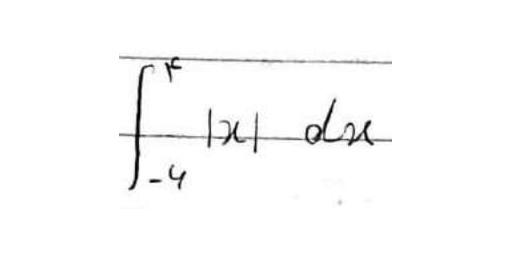 ∫_{-4} |x| dx